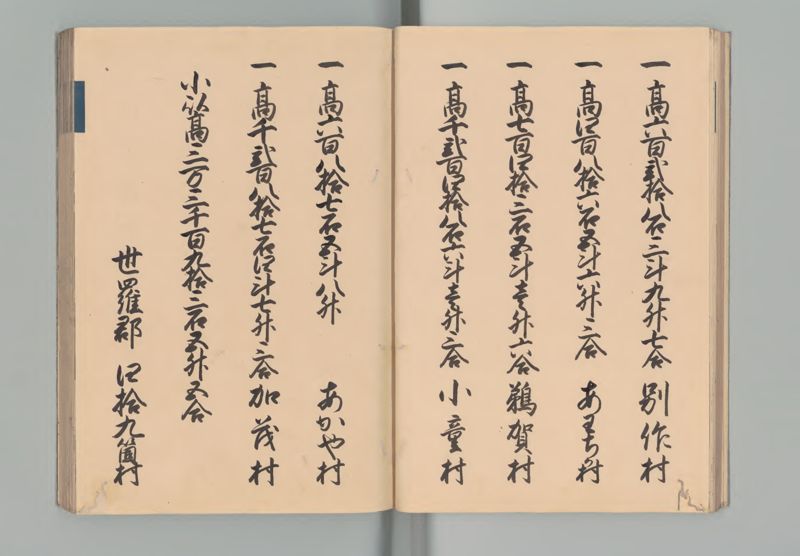 一高六百弐拾八石三斗九升七合 別作村
一高四百八拾六石五斗六升三合 あわち村
一高七百四拾三石五斗壱升六合 鵜賀村
一高千弐百四拾八石六斗壱升三合 小童村
一高六百八拾七石五斗八升 あかや村
一高千弐百八拾七石四斗七升三合 加茂村
小以高三万三千百九拾三石五升五合
世羅郡 四拾九箇村